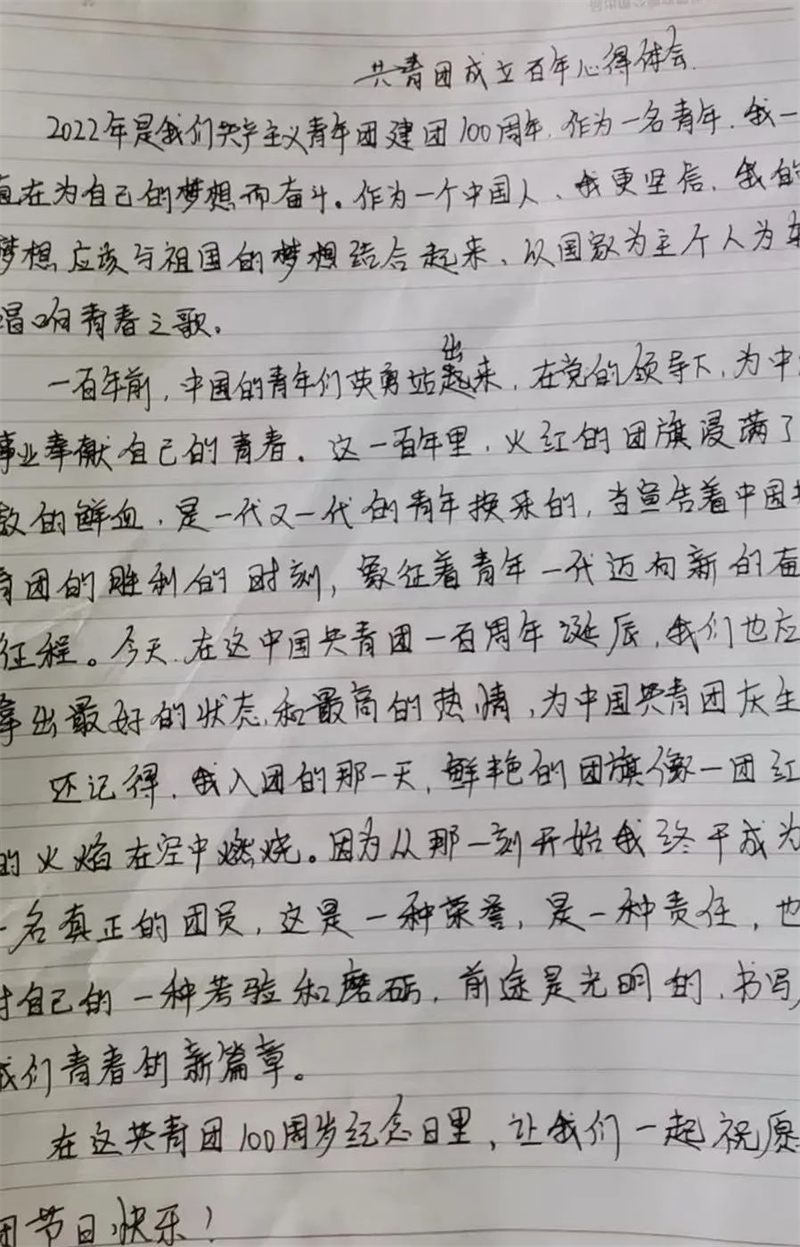 共青团成立百年心得体会
2022年是我们共产主义青年团建团100周年,作为一名青年,我一
直在为自己的梦想而奋斗。作为一个中国人、我更坚信,我的
梦想应该与祖国的梦想结合起来、以国家为主个人为
唱响青春之歌。
一百年前,中国的青年们英勇站出来,在党的领导下,为中
事业奉献自己的青春。这一百年里,火红的团旗浸满了
数的鲜血,是一代又一代的青年换来的,当宣告着中国
青团的胜利的时刻,象征着青年一代迈向新的奋
征程。今天,在这中国共青团一百周年诞辰,我们也应
拿出最好的状态,和最高的热情,为中国共青团庆生
还记得,我入团的那一天,鲜艳的团旗像一团红
的火焰在空中燃烧。因为从那一刻开始我终于成为
一名真正的团员,这是一种荣誉,是一种责任,也
对自己的一种考验和磨砺,前途是光明的,书写
我们青春的新篇章。
在这共青团100周岁纪念日里,让我们一起祝愿
团节日快乐!